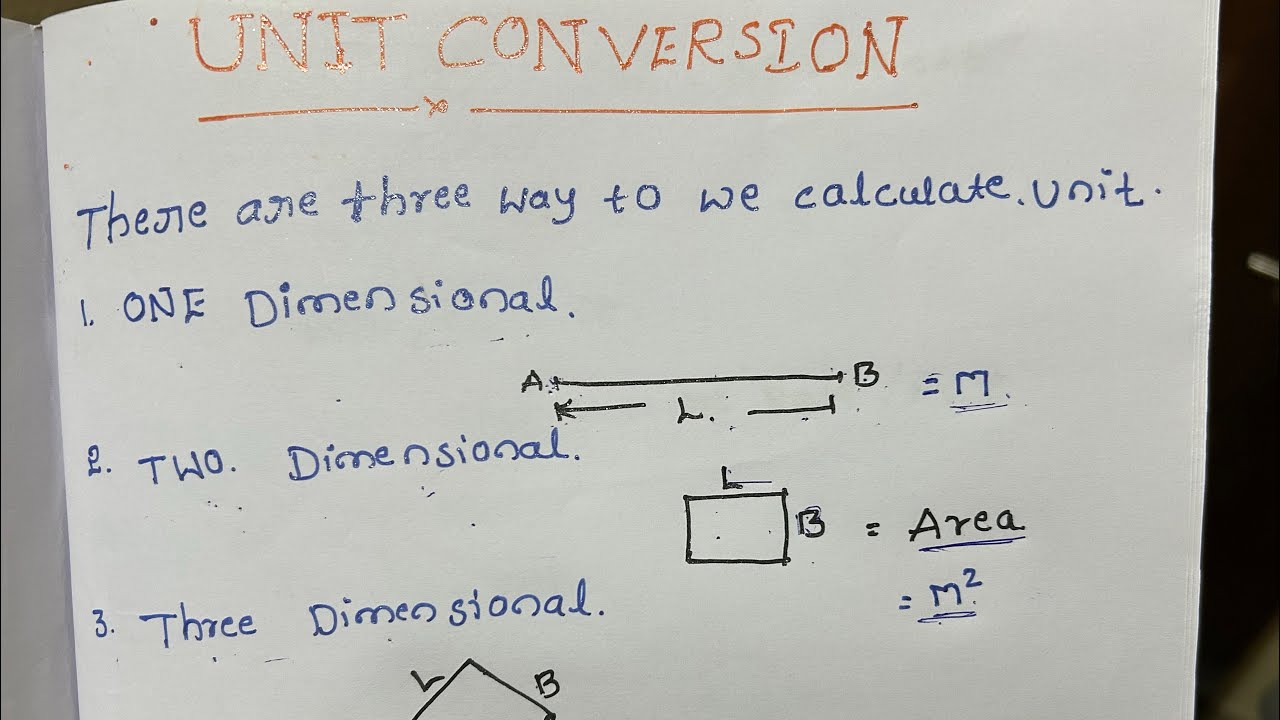 UNIT CONVERSION
There are three way to we calculate. Unit.
1. ONE Dimensional.
A B = M.
L.
2. TWO. Dimensional.
L
B = Area
= M²
3. Three Dimensional.
L B